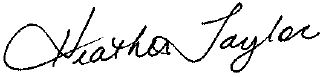 Heather Taylor